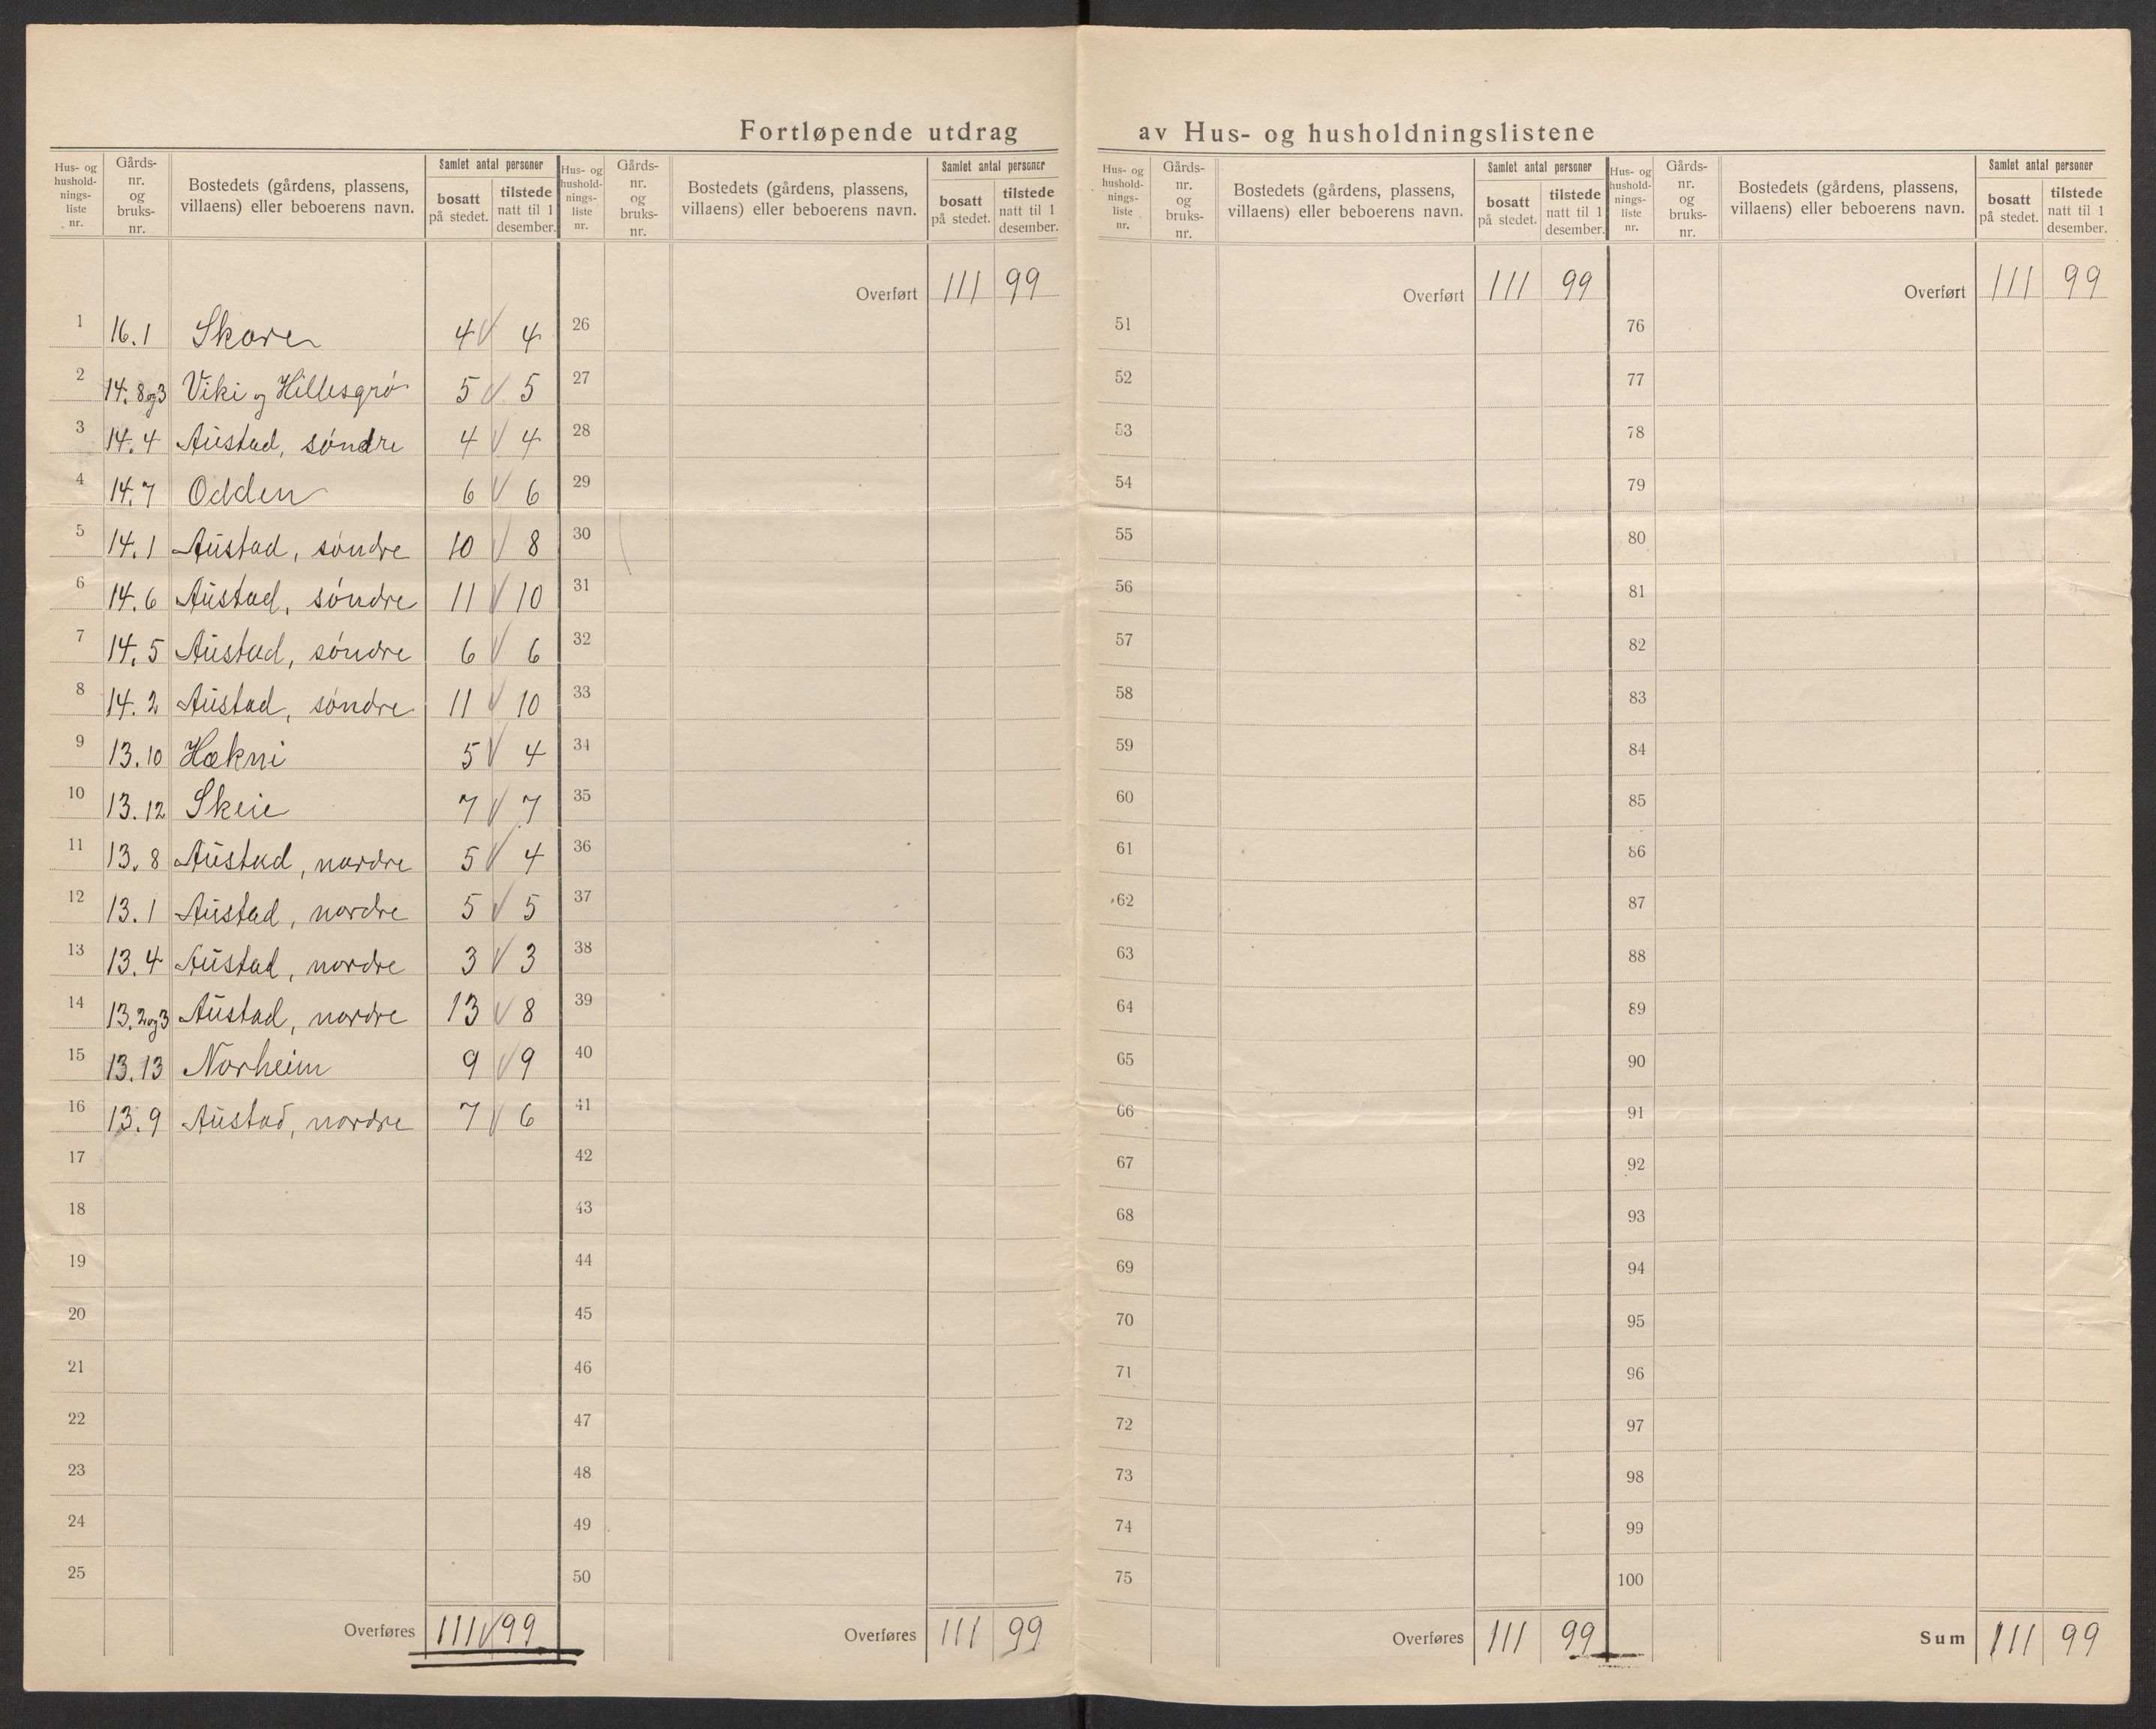 Fortløpende utdrag av Hus- og husholdningslistene
Hus- og husholdnings-liste nr. Gårds-nr. og bruks-nr. Bostedets (gårdens, plassens, villaens) eller beboerens navn. Samlet antal personer bosatt på stedet. tilstede natt til 1 desember.
1 16.1 Skore 4 4
2 14.8og3 Viki og Hillesgrø 5 5
3 14.4 Austad, søndre 4 4
4 14.7 Odden 6 6
5 14.1 Austad, søndre 10 8
6 14.6 Austad, søndre 11 10
7 14.5 Austad, søndre 6 6
8 14.2 Austad, søndre 11 10
9 13.10 Hækni 5 4
10 13.12 Skeie 7 7
11 13.8 Austad, nordre 5 4
12 13.1 Austad, nordre 5 5
13 13.4 Austad, nordre 3 3
14 13.2og3 Austad, nordre 13 8
15 13.13 Norheim 9 9
16 13.9 Austad, nordre 7 6
17
18
19
20
21
22
23
24
25
Overføres 111 99
Hus- og husholdnings-liste nr. Gårds-nr. og bruks-nr. Bostedets (gårdens, plassens, villaens) eller beboerens navn. Samlet antal personer bosatt på stedet. tilstede natt til 1 desember.
Overført 111 99
26
27
28
29
30
31
32
33
34
35
36
37
38
39
40
41
42
43
44
45
46
47
48
49
50
Overføres 111 99
Hus- og husholdnings-liste nr. Gårds-nr. og bruks-nr. Bostedets (gårdens, plassens, villaens) eller beboerens navn. Samlet antal personer bosatt på stedet. tilstede natt til 1 desember.
Overført 111 99
51
52
53
54
55
56
57
58
59
60
61
62
63
64
65
66
67
68
69
70
71
72
73
74
75
Overføres 111 99
Hus- og husholdnings-liste nr. Gårds-nr. og bruks-nr. Bostedets (gårdens, plassens, villaens) eller beboerens navn. Samlet antal personer bosatt på stedet. tilstede natt til 1 desember.
Overført 111 99
76
77
78
79
80
81
82
83
84
85
86
87
88
89
90
91
92
93
94
95
96
97
98
99
100
Sum 111 99